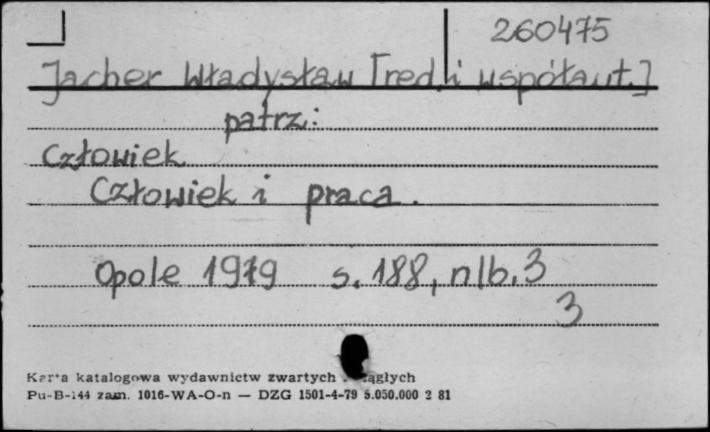 260475
Jacher Władysław [red. i współaut.]
patrz:
Człowiek
Człowiek i praca.
Opole 1979 s. 188, nlb. 3
3
Karta katalogowa wydawnictw zwartych ciągłych
Pu-B-144 zam. 1016-WA-O-n — DZG 1501-4-79 5.050.000 2 81